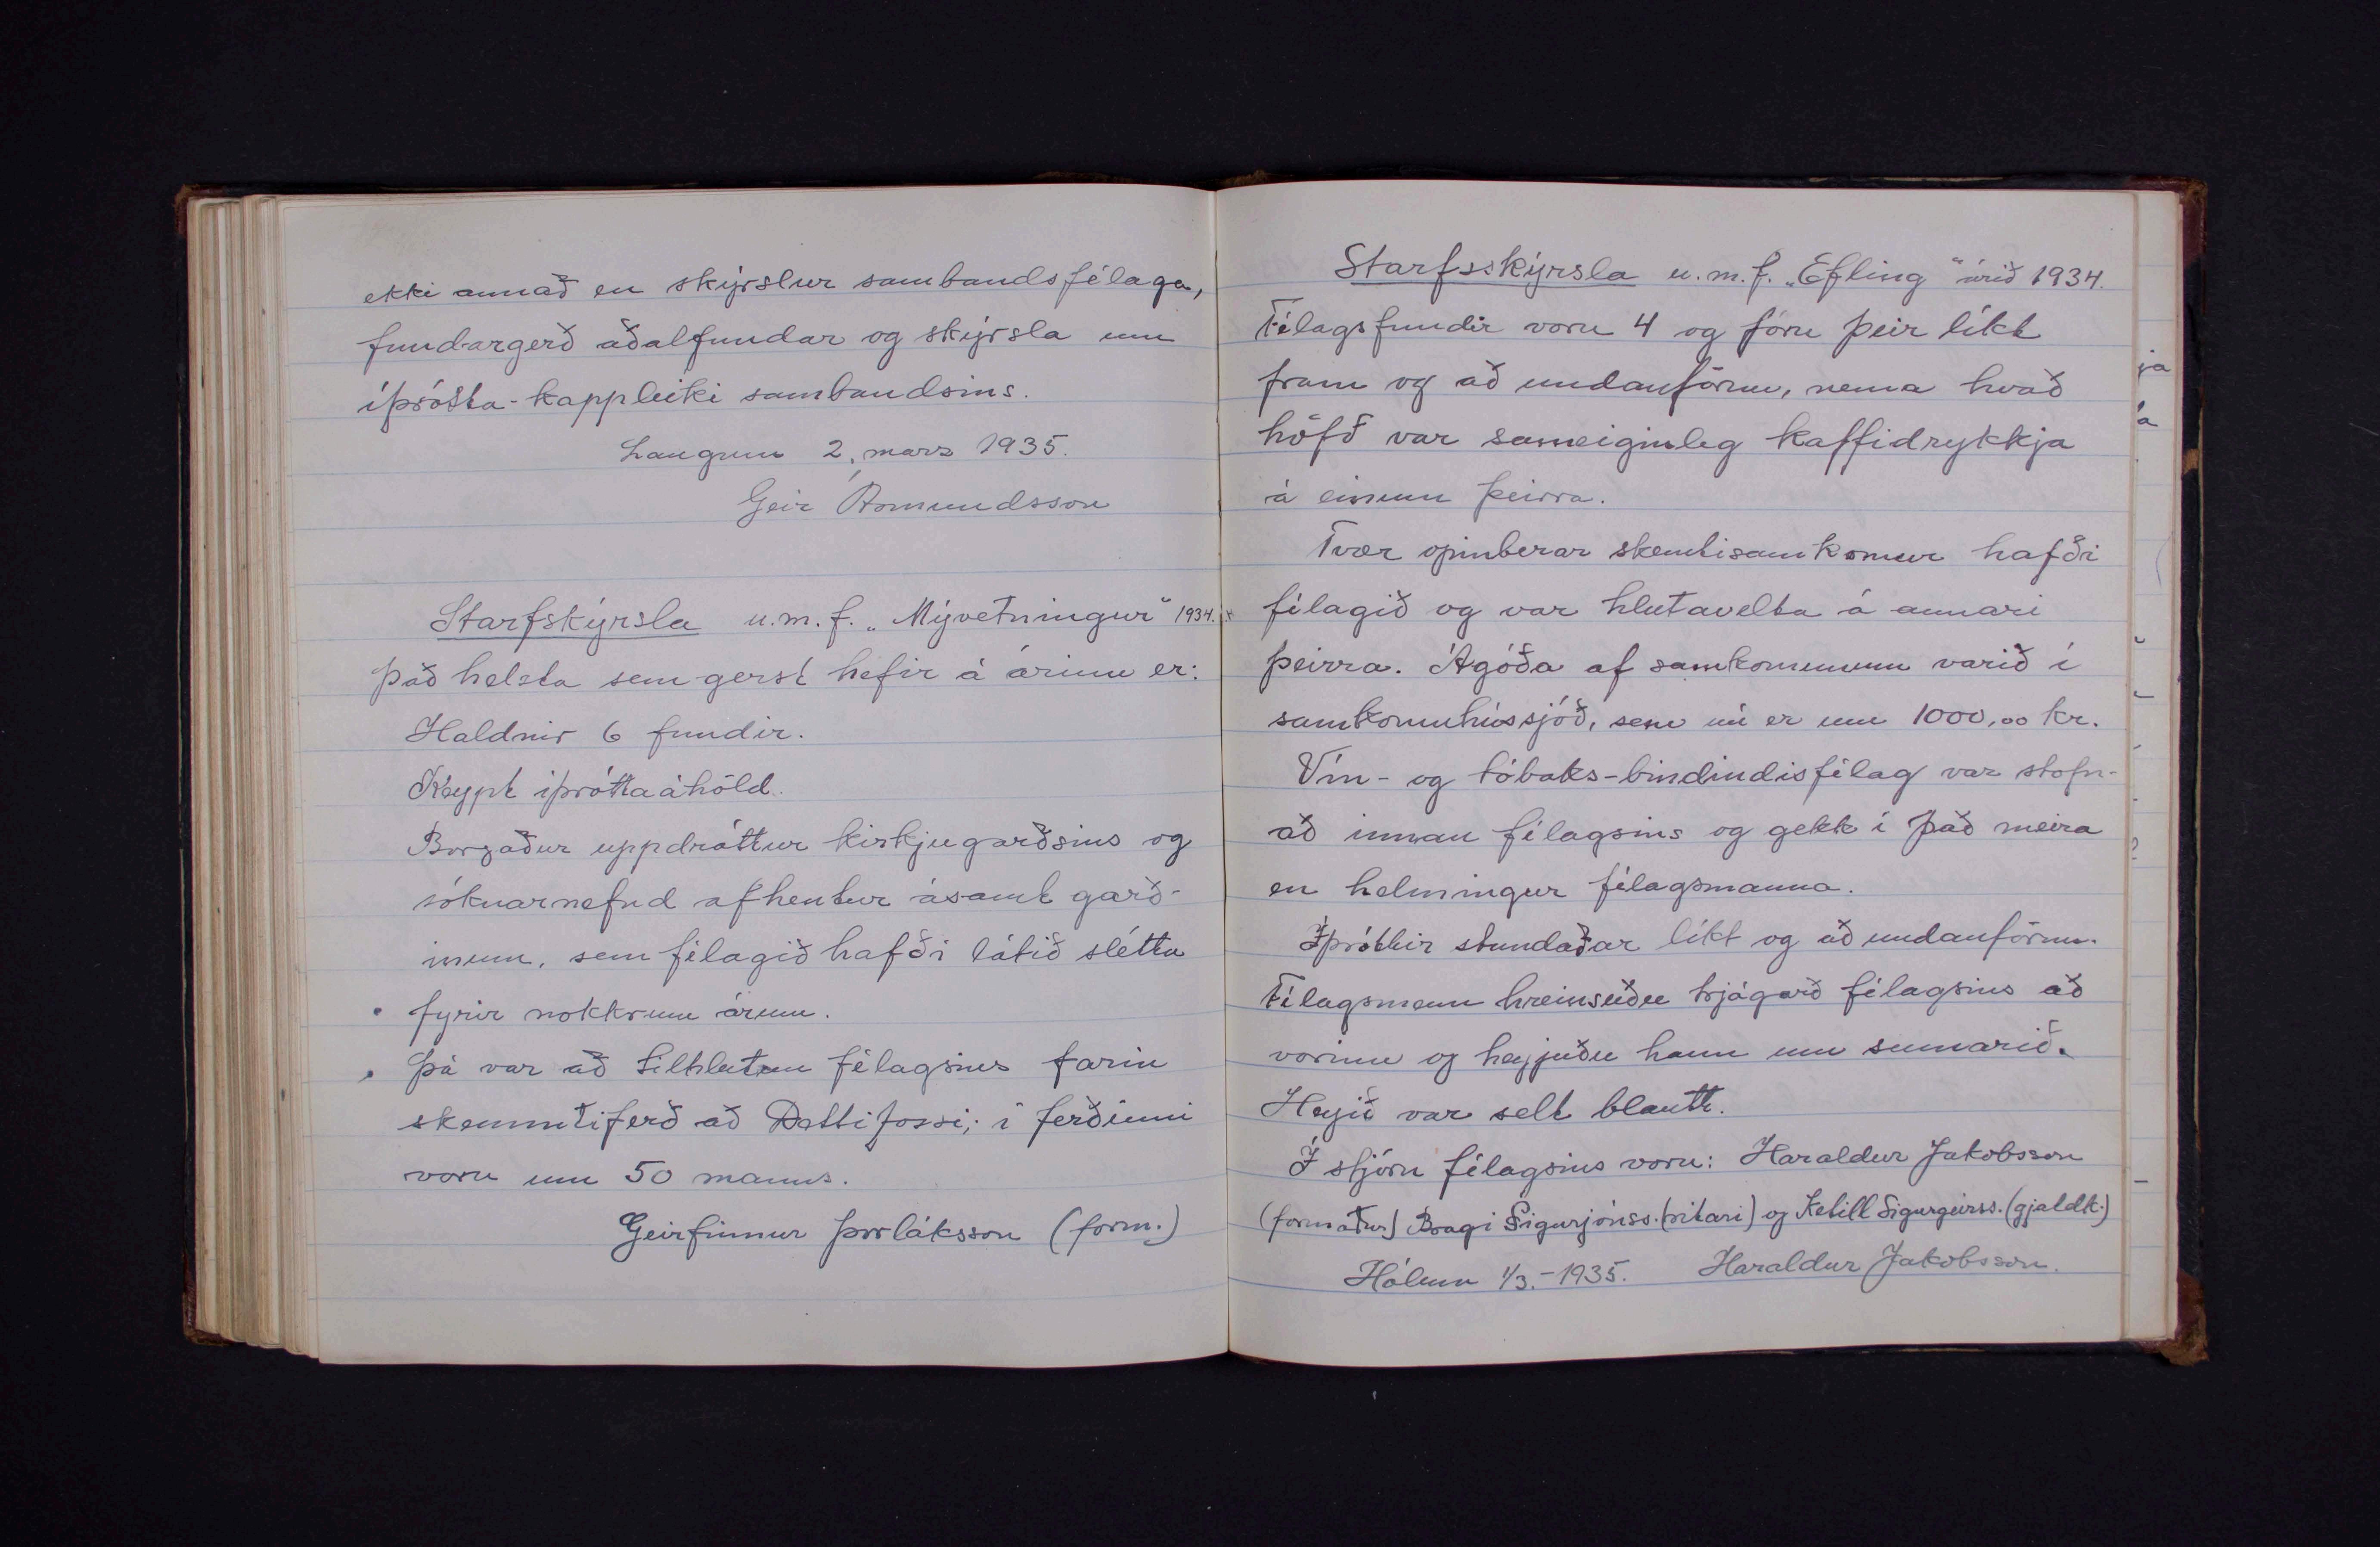 ekki annað en skýrslur sambandsfélaga,
fundargerð aðalfundar og skýrsla um
íþrótta-kappleiki sambandsins.
Laugum 2. mars 1935.
Geir Ásmundsson
Starfskýrsla u.m.f. „Mývetningur" 1934.
Það helsta sem gerst hefir á árinu er:
Haldnir 6 fundir.
Keypt íþróttaáhöld.
Borgaður uppdráttur kirkjugarðsins og
sóknarnefnd afhentur ásamt garð-
inum, sem félagið hafði látið slétta
fyrir nokkrum árum.
Þá var að tilhlutun félagsins farin
skemmtiferð að Dettifossi; í ferðinni
voru um 50 manns.
Geirfinnur Þorláksson (form.)
Starfsskýrsla u.m.f. „Efling" árið 1934.
Félagsfundir voru 4 og fóru þeir líkt
fram og að undanförnu, nema hvað
höfð var sameiginleg kaffidrykkja
á einum þeirra.
Tvær opinberar skemtisamkomur hafði
félagið og var hlutavelta á annari
þeirra. Ágóða af samkomunum varið í
samkomuhússjóð, sem nú er um 1000,00 kr.
Vín- og tóbaks-bindindisfélag var stofn-
að innan félagsins og gekk í það meira
en helmingur félagsmanna.
Íþróttir stundaðar líkt og að undanförnu.
Félagsmenn hreinsuðu trjágarð félagsins að
vorinu og heyjuðu hann um sumarið.
Heyið var selt blautt.
Í stjórn félagsins voru: Haraldur Jakobsson
(formaður) Bragi Sigurjónss. (ritari) og Ketill Sigurgeirss. (gjaldk.)
Hólum 1/3.-1935. Haraldur Jakobsson.